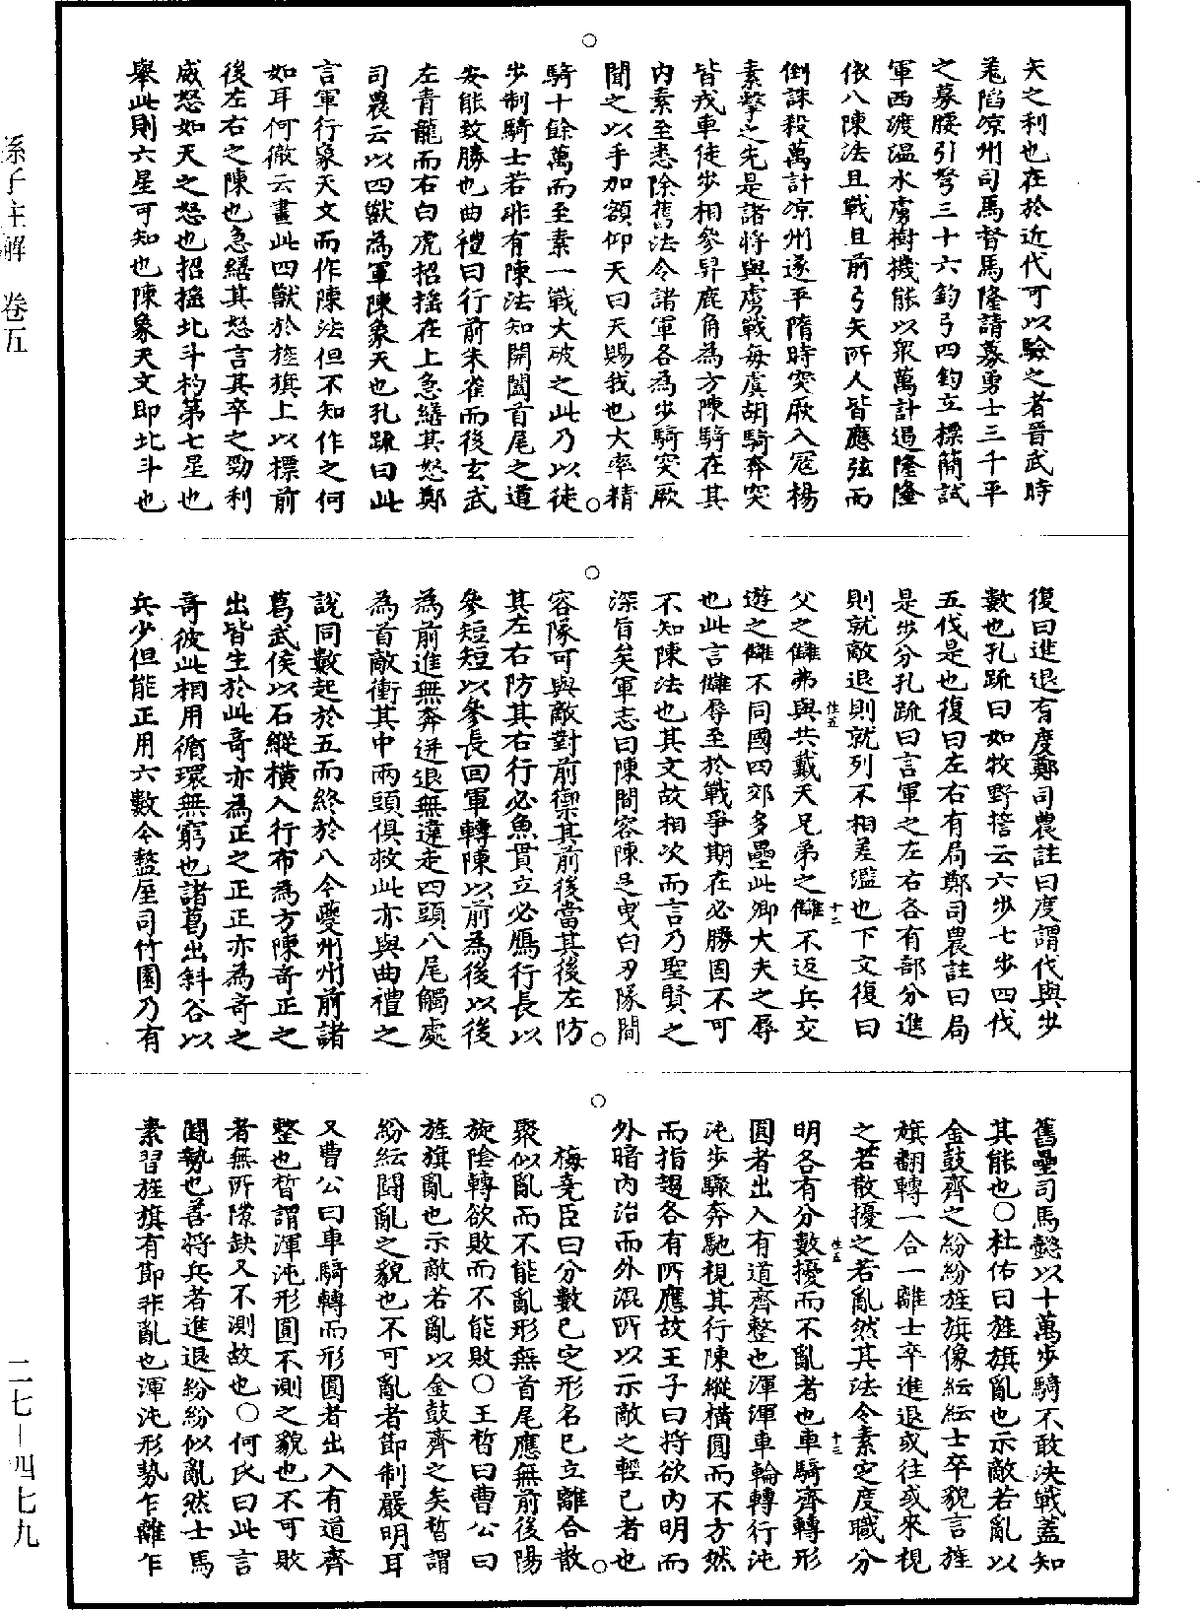 矢之利也在於近代可以驗之者晉武時
羌陷凉州司馬督馬隆請募勇士三千平
之募腰引弩三十六鈞弓四鈞立標簡試
軍西渡温水虜樹機能以衆萬計遏隆隆
依八陳法且戰且前弓矢所人皆應弦而
倒誅殺萬計凉州遂平隋時突厥入寇楊
素擊之先是諸將與虜戰每虞胡騎奔突
皆戎車徒步相參舁鹿角為方陳騎在其
内素至悉除舊法令諸軍各為步騎突厥
聞之以手加額仰天曰天賜我也大率精
騎十餘萬而至素一戰大破之此乃以徒
步制騎士若非有陳法知開闔首尾之道
安能致勝也曲禮曰行前朱雀而後玄武
左青龍而右白虎招摇在上急繕其怒鄭
司農云以四獸為軍陳象天也孔疏曰此
言軍行象天文而作陳法但不知作之何
如耳何徹云畫此四獸於旌旗上以標前
後左右之陳也急繕其怒言其卒之勁利
威怒如天之怒也招摇北斗杓第七星也
舉此則六星可知也陳象天文即北斗也
復曰進退有度鄭司農註曰度謂伐與步
數也孔疏曰如牧野誓云六步七步四伐
五伐是也復曰左右有局鄭司農註曰局
是步分孔疏曰言軍之左右各有部分進
則就敵退則就列不相差濫也下文復曰
父之讎弗與共戴天兄弟之讎不返兵交
遊之讎不同國四郊多壘此卿大夫之辱
也此言讎辱至於戰爭期在必勝固不可
不知陳法也其文故相次而言乃聖賢之
深旨矣軍志曰陳間容陳足曳白刃隊間
容隊可與敵對前禦其前後當其後左防
其左右防其右行必魚貫立必鴈行長以
參短短以參長回軍轉陳以前為後以後
為前進無奔迸退無違走四頭八尾觸處
為首敵衝其中兩頭俱救此亦與曲禮之
說同數起於五而終於八今夔州州前諸
葛武侯以石縱横入行布為方陳奇正之
出皆生於此奇亦為正之正正亦為奇之
奇彼此相用循環無窮也諸葛出斜谷以
兵少但能正用六數今盩厔司竹園乃有
舊壘司馬懿以十萬步騎不敢決戰蓋知
其能也○杜佑曰旌旗亂也示敵若亂以
金鼓齊之紛紛旌旗像紜紜士卒貌言旌
旗翻轉一合一離士卒進退或往或來視
之若散擾之若亂然其法令素定度職分
明各有分數擾而不亂者也車騎齊轉形
圓者出入有道齊整也渾渾車輪轉行沌
沌步驟奔馳視其行陳縱横圓而不方然
而指趨各有所應故王子曰将欲内明而
外暗内治而外混所以示敵之輕己者也
梅堯臣曰分數已定形名已立離合散
聚似亂而不能亂形無首尾應無前後陽
旋陰轉欲敗而不能敗○王晳曰曹公曰
旌旗亂也示敵若亂以金鼓齊之矣晳謂
紛紜鬪亂之貌也不可亂者節制嚴明耳
又曹公曰車騎轉而形圓者出入有道齊
整也晳謂渾沌形圓不測之貌也不可敗
者無所隙缺又不測故也○何氏曰此言
鬪勢也善將兵者進退紛紛似亂然士馬
素習旌旗有節非亂也渾沌形勢乍離乍
孫子注解　卷五
二七—四七九